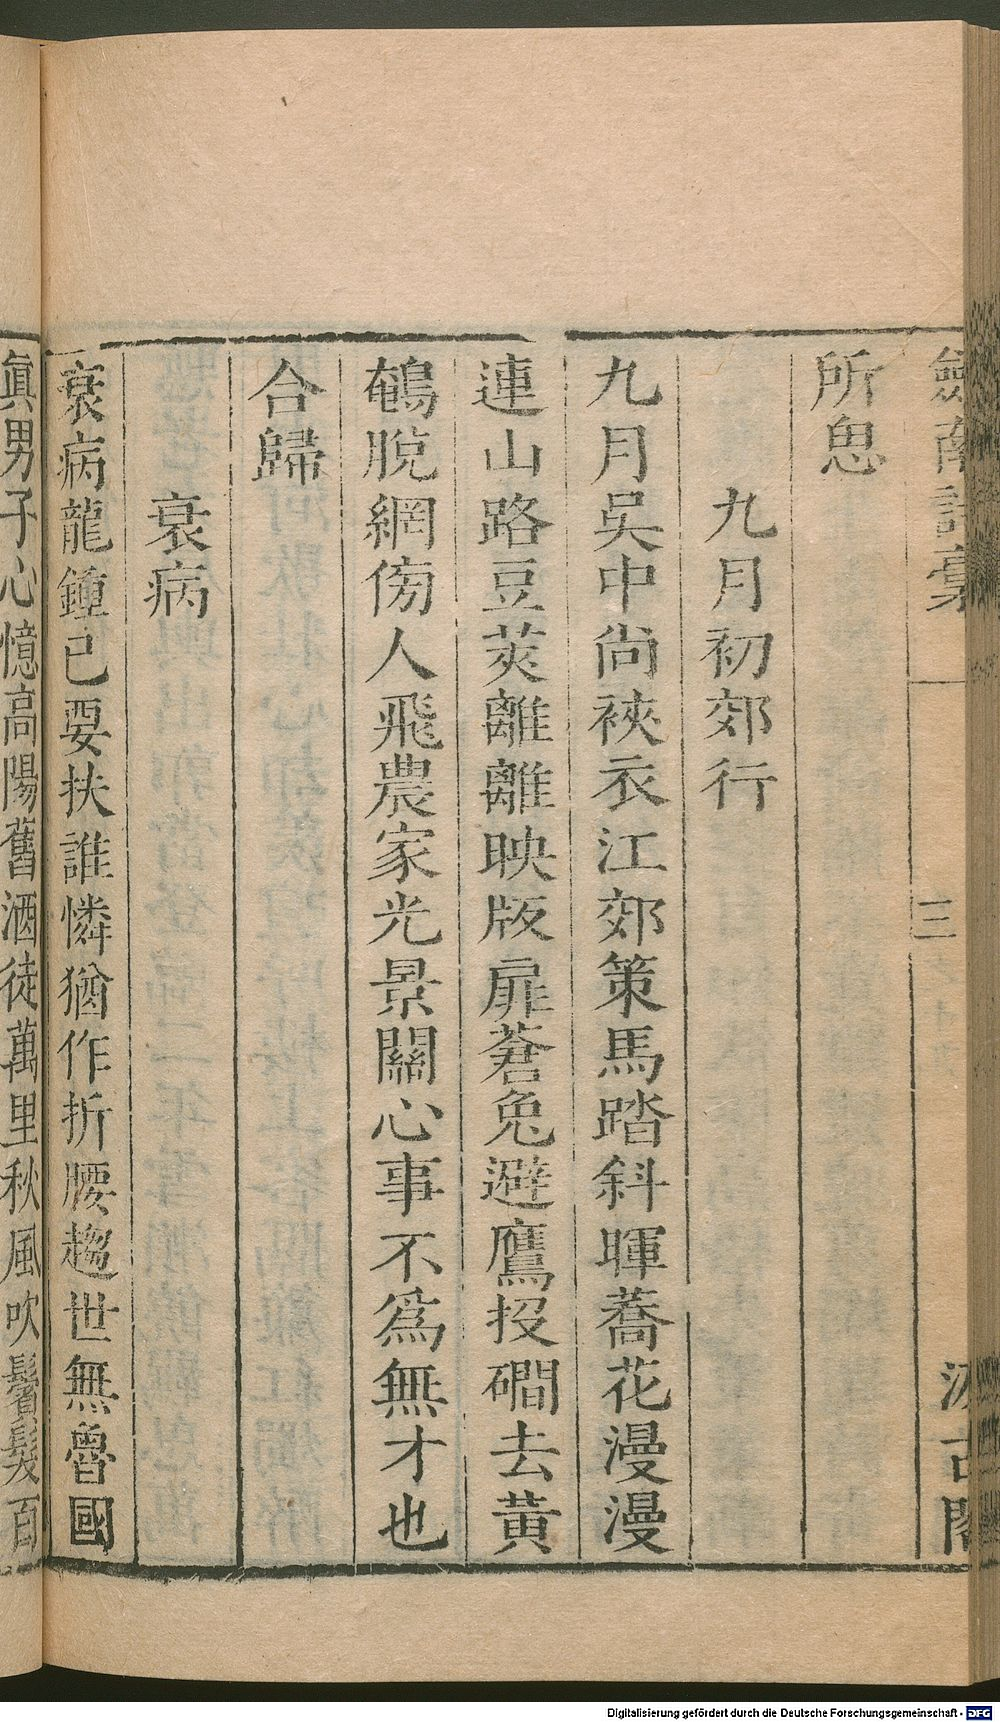 劒南詩稾 三 汲古閣
所思
九月初郊行
九月吳中尚裌衣江郊策馬踏斜暉蕎花漫漫
連山路豆莢離離映版扉蒼兔避鷹投磵去黃
鵪脫網傍人飛農家光景關心事不爲無才也
合歸
衰病
衰病龍鍾已要扶誰憐猶作折腰趨世無魯國
眞男子心憶高陽舊酒徒萬里秋風吹鬢髮百
Digitalisierung gefördert durch die Deutsche Forschungsgemeinschaft - DFG